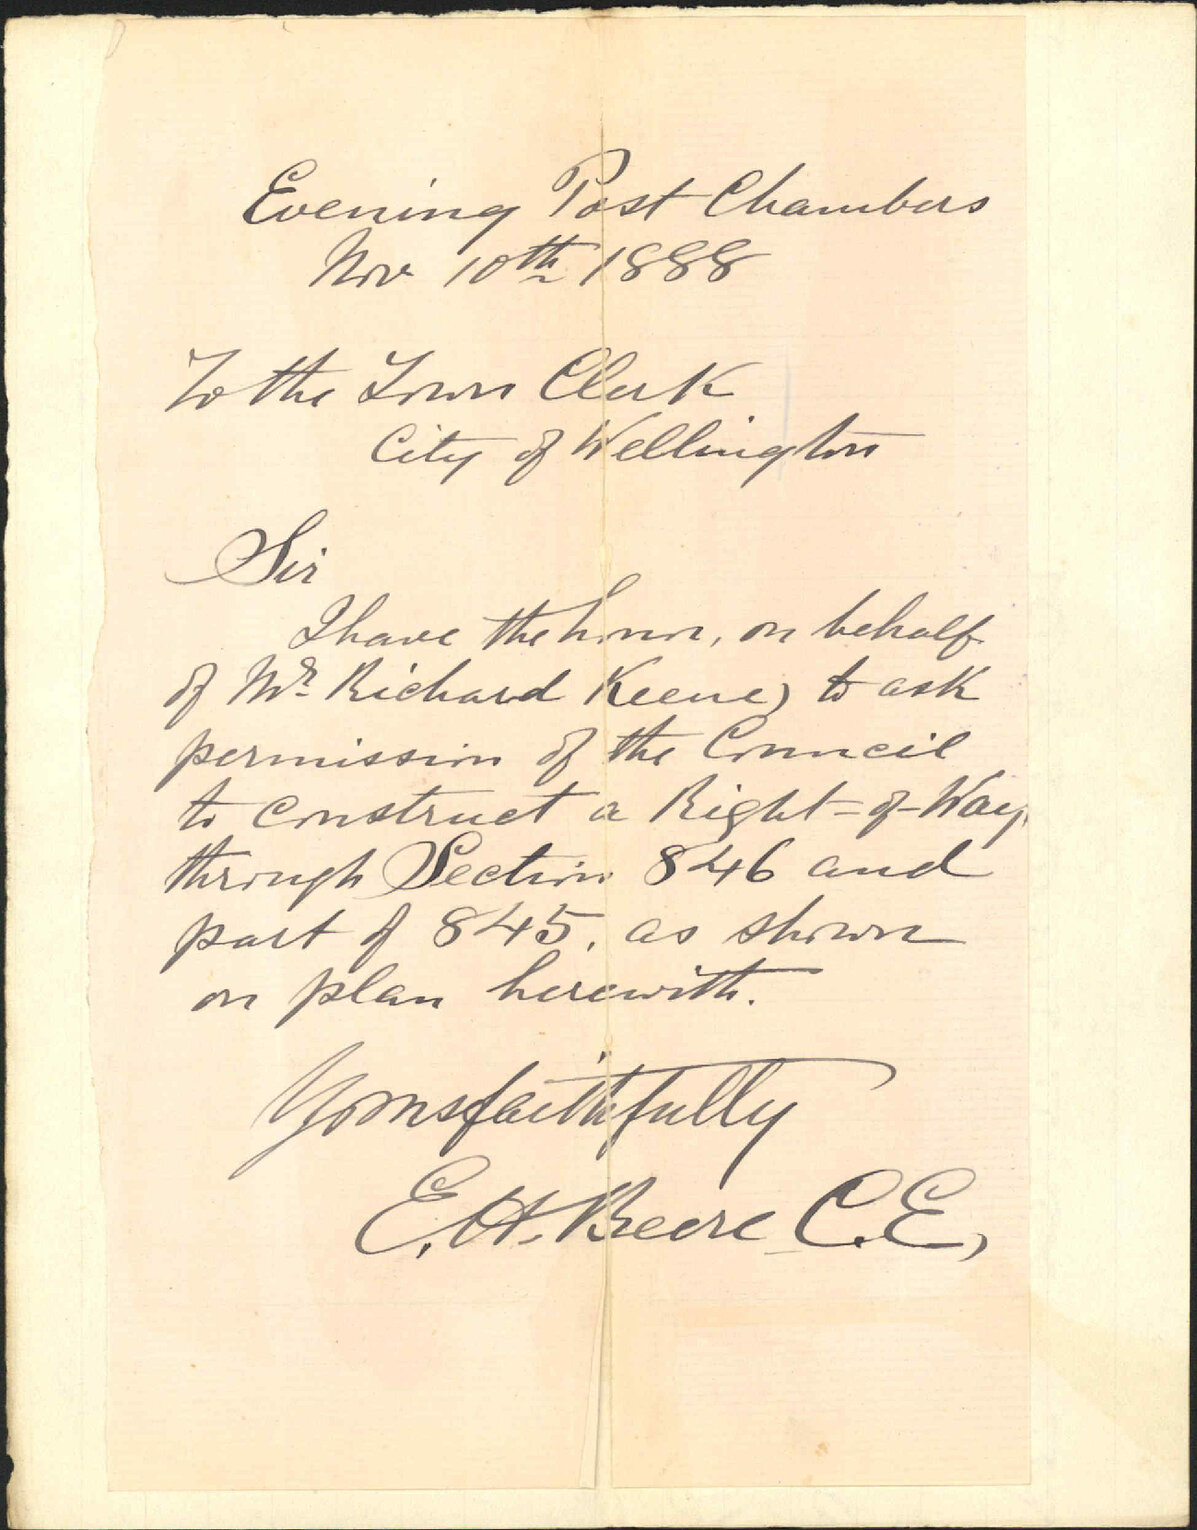 Evening Post Chambers
Nov 10th 1888
To the Town Clerk
City of Wellington
Sir
I have the honor, on behalf
of Mr Richard Keene, to ask
permission of the Council
to construct a Right-of-Way
through Section 846 and
part of 845, as shown
on plan herewith.
Yours faithfully
E. H. Beere C.E,